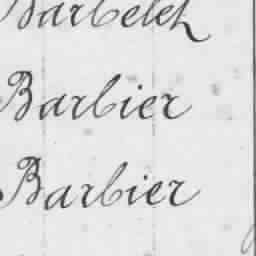 Barbelet
Barbier
Barbier